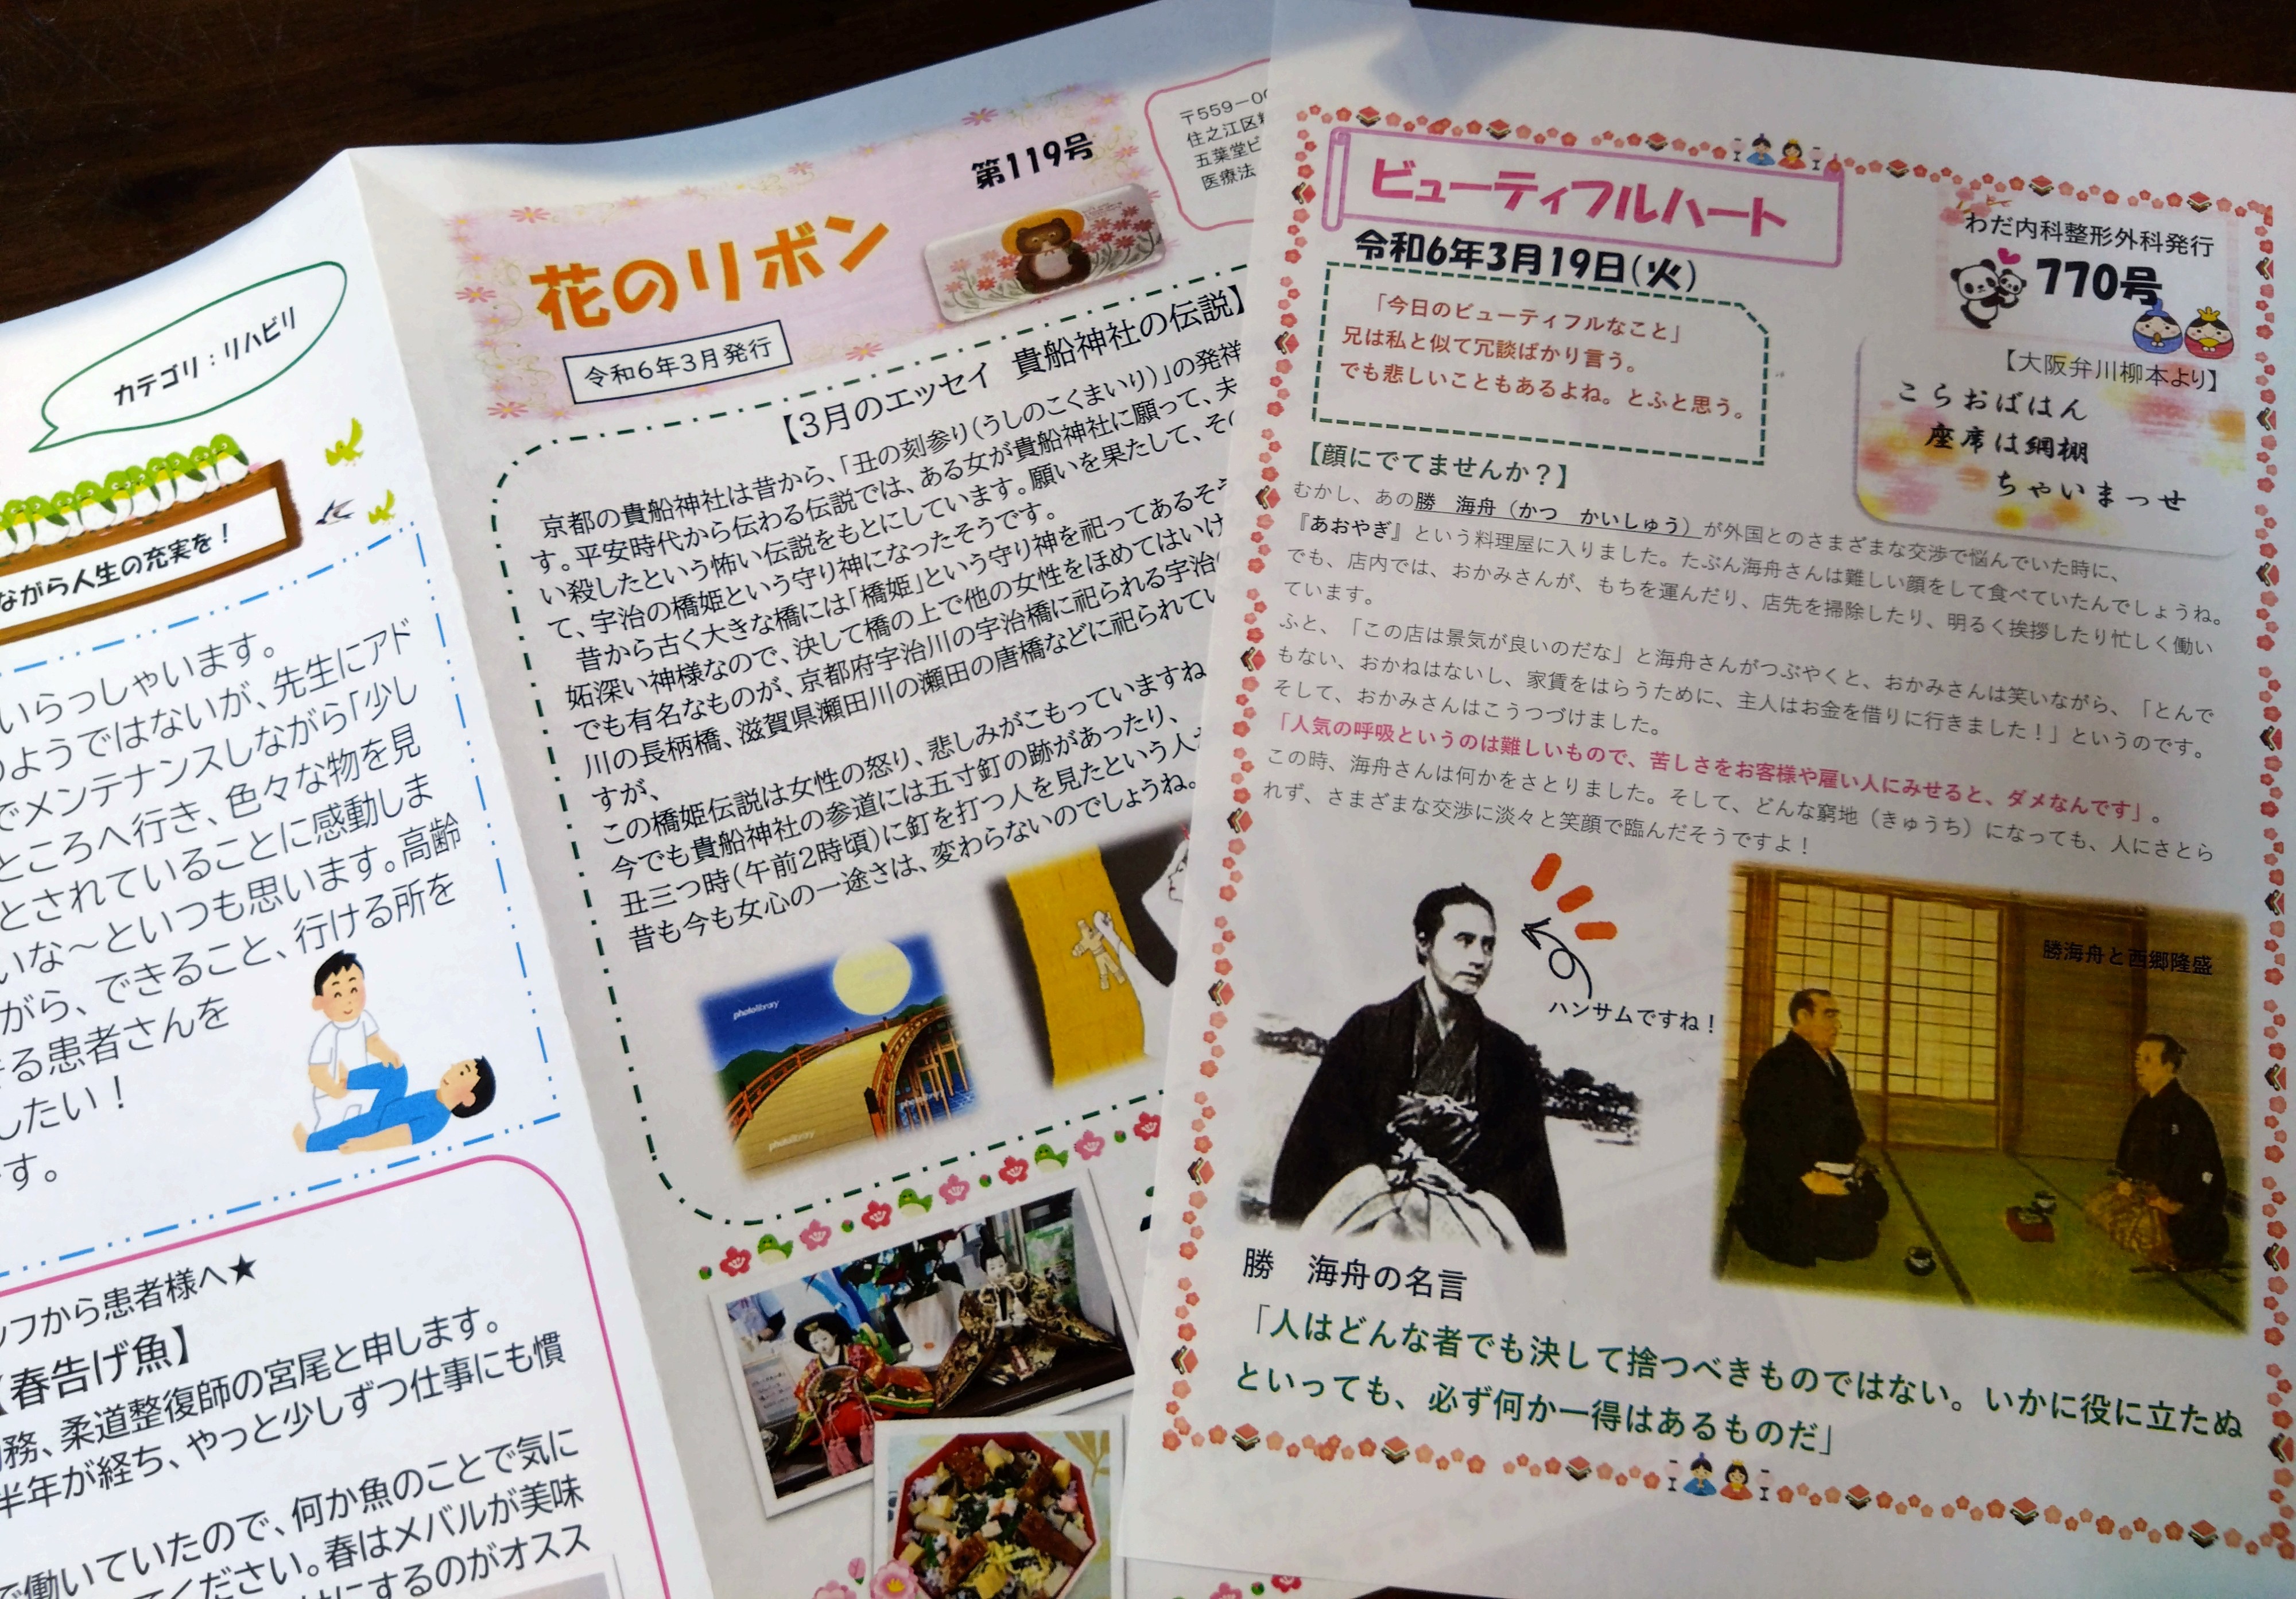 カテゴリ:リハビリ
ながら人生の充実を!
いらっしゃいます。
のようではないが、先生にアド
でメンテナンスしながら「少し
ところへ行き、色々な物を見
とされていることに感動しま
いな〜といつも思います。高齢
がら、できること、行ける所を
る患者さんを
したい!
す。
ッフから患者様へ★
【春告げ魚】
務、柔道整復師の宮尾と申します。
半年が経ち、やっと少しずつ仕事にも慣
で働いていたので、何か魚のことで気に
ください。春はメバルが美味
にするのがオスス
第119号
花のリボン
令和6年3月発行
〒559-00
住之江区
五葉堂ビ
医療法
【3月のエッセイ 貴船神社の伝説】
京都の貴船神社は昔から、「丑の刻参り(うしのこくまいり)」の発祥
す。平安時代から伝わる伝説では、ある女が貴船神社に願って、夫
い殺したという怖い伝説をもとにしています。願いを果たして、そ
て、宇治の橋姫という守り神になったそうです。
昔から古く大きな橋には「橋姫」という守り神を祀ってあるそ
妬深い神様なので、決して橋の上で他の女性をほめてはいけ
でも有名なものが、京都府宇治川の宇治橋に祀られる宇治
川の長柄橋、滋賀県瀬田川の瀬田の唐橋などに祀られてい
すが、
この橋姫伝説は女性の怒り、悲しみがこもっていますね
今でも貴船神社の参道には五寸釘の跡があったり、
丑三つ時(午前2時頃)に釘を打つ人を見たという人
昔も今も女心の一途さは、変わらないのでしょうね。
photolibrary
photolibrary
photolibrary
ビューティフルハート
令和6年3月19日(火)
わだ内科整形外科発行
770号
「今日のビューティフルなこと」
兄は私と似て冗談ばかり言う。
でも悲しいこともあるよね。とふと思う。
【大阪弁川柳本より】
こらおばはん
座席は網棚
ちゃいまっせ
【顔にでてませんか?】
むかし、あの勝 海舟(かつ かいしゅう)が外国とのさまざまな交渉で悩んでいた時に、
『あおやぎ』という料理屋に入りました。たぶん海舟さんは難しい顔をして食べていたんでしょうね。
でも、店内では、おかみさんが、もちを運んだり、店先を掃除したり、明るく挨拶したり忙しく働い
ています。
ふと、「この店は景気が良いのだな」と海舟さんがつぶやくと、おかみさんは笑いながら、「とんで
もない、おかねはないし、家賃をはらうために、主人はお金を借りに行きました!」というのです。
そして、おかみさんはこうつづけました。
「人気の呼吸というのは難しいもので、苦しさをお客様や雇い人にみせると、ダメなんです」。
この時、海舟さんは何かをさとりました。そして、どんな窮地(きゅうち)になっても、人にさとら
れず、さまざまな交渉に淡々と笑顔で臨んだそうですよ!
ハンサムですね!
勝海舟と西郷隆盛
勝 海舟の名言
「人はどんな者でも決して捨つべきものではない。いかに役に立たぬ
といっても、必ず何か一得はあるものだ」